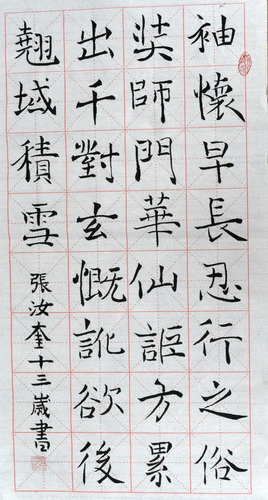 袖懷早長忍行之俗
奘師門華仙詎方累
出千對玄慨訛欲後
翹域積雪
張汝奎十三歲書